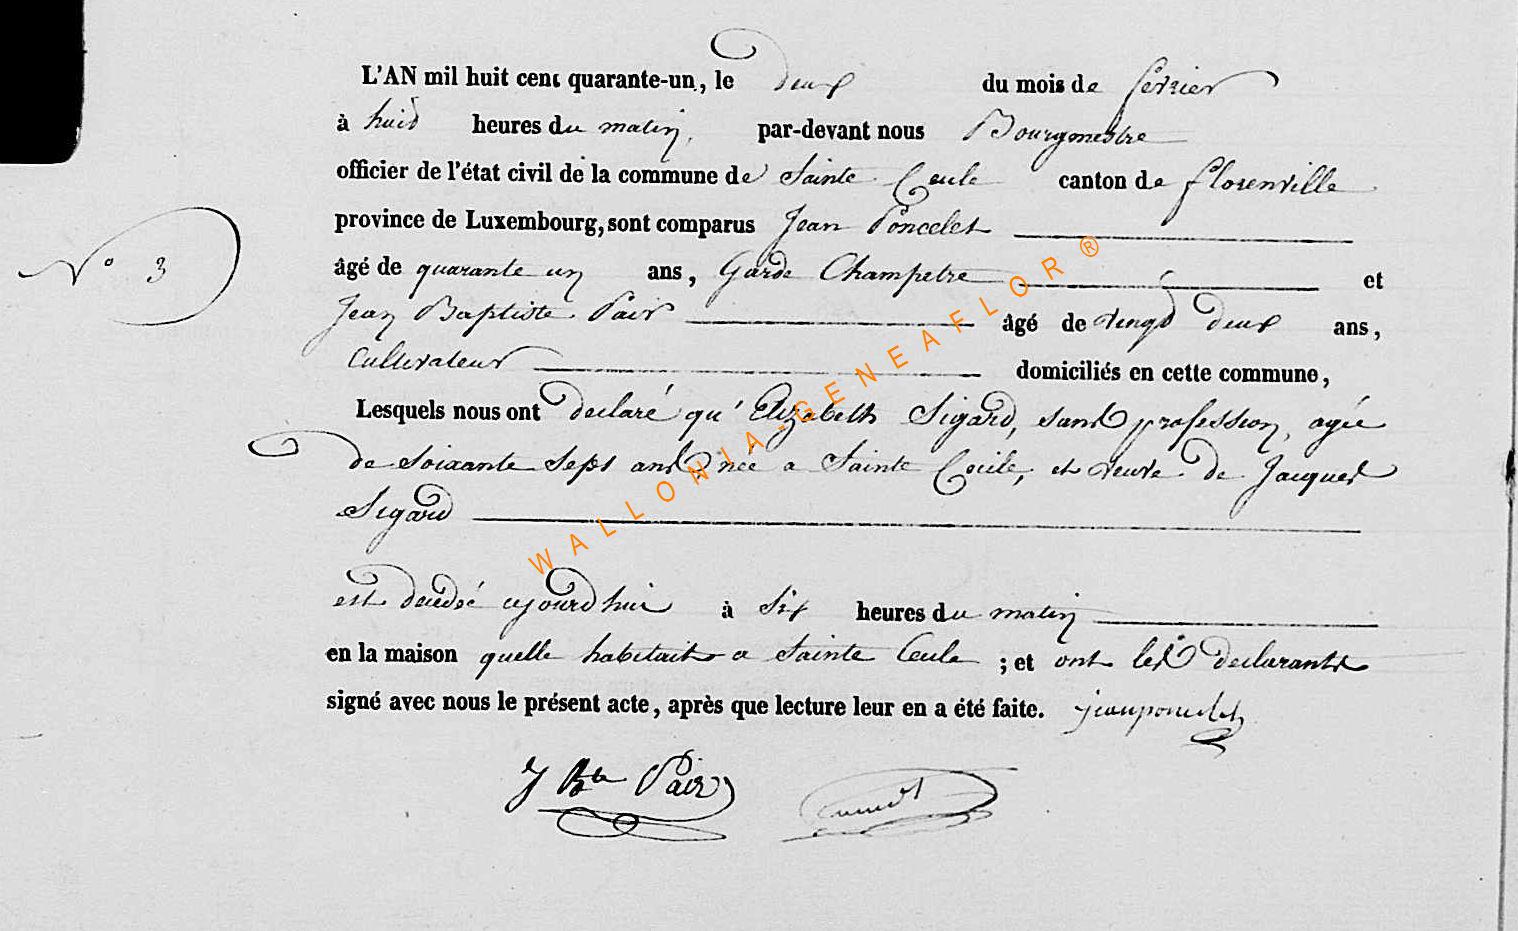 L'AN mil huit cent quarante-un, le deux du mois de fevrier
à huit heures du matin, par-devant nous Bourgmestre
officier de l'état civil de la commune de Sainte Cecile canton de florenville
province de Luxembourg, sont comparus Jean Poncelet
N° 3
âgé de quarante un ans, Garde Champetre et
Jean Baptiste Pair âgé de vingt deux ans,
Cultivateur domiciliés en cette commune,
Lesquels nous ont declaré qu'Elizabeth Sigard, sans profession, agée
de soixante sept ans, née a Sainte Cecile, et veuve de Jacques
Sigard
est decedée aujourd'hui à six heures du matin
en la maison quelle habitait a Sainte Cecile ; et ont les declarants
signé avec nous le présent acte, après que lecture leur en a été faite. jean poncelet
J Bte Pair
WALLONIA-GENEAFLOR ®